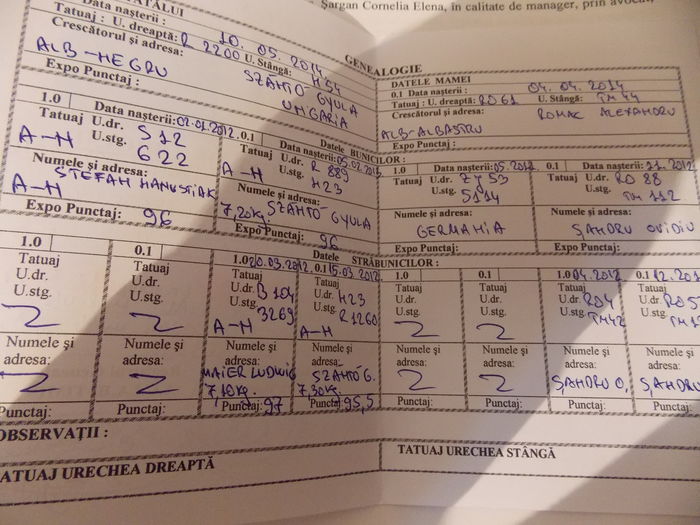 Șargan Cornelia Elena, în calitate de manager, prin avocat
TATĂLUI
Data nașterii : 10. 05. 2014.
Tatuaj : U. dreaptă: R 2200 U. Stângă: H 54
Crescătorul și adresa:
ALB-NEGRU SZÁNTÓ GYULA
UNGARIA
Expo Punctaj :
GENEALOGIE
DATELE MAMEI
0.1 Data nașterii : 04. 04. 2014
Tatuaj : U. dreaptă: RO 61 U. Stângă: TM 44
Crescătorul și adresa: ROMAC ALEXANDRU
ALB-ALBASTRU
Expo Punctaj :
Datele BUNICILOR :
1.0 Data nașterii: 02.01.2012.
Tatuaj U.dr. S 12
A-H U.stg. 622
Numele și adresa:
STEFAN
A-H
Expo Punctaj: 96
0.1 Data nașterii: 05.02.2013.
Tatuaj U.dr. R 889
A-H U.stg. H23
Numele și adresa:
SZÁNTÓ GYULA
7,20kg.
Expo Punctaj: 96
1.0 Data nașterii: 05.2012.
Tatuaj U.dr. Z y 53
U.stg. S114
Numele și adresa:
GERMANIA
Expo Punctaj:
0.1 Data nașterii:
Tatuaj U.dr. RO 88
U.stg. TM 112
Numele și adresa:
ȘANDRU OVIDIU
Expo Punctaj:
Datele STRĂBUNICILOR :
1.0
Tatuaj
U.dr.
U.stg.
Numele și
adresa:
Punctaj:
0.1
Tatuaj
U.dr.
U.stg.
Numele și
adresa:
Punctaj:
1.0 20.03.2012.
Tatuaj
U.dr. B 104
U.stg. 3269
A-H
Numele și
adresa:
MAIER LUDWIG
7,10kg.
Punctaj: 97
0.1 15.03.2012.
Tatuaj
U.dr. H23
U.stg. R 1260
A-H
Numele și
adresa:
SZÁNTÓ G.
7,30kg.
Punctaj: 95,5
1.0
Tatuaj
U.dr.
U.stg.
Numele și
adresa:
Punctaj:
0.1
Tatuaj
U.dr.
U.stg.
Numele și
adresa:
Punctaj:
1.0 04.2012.
Tatuaj
U.dr. RO4
U.stg. TM42
Numele și
adresa:
ȘANDRU O,
Punctaj:
0.1 12.201
Tatuaj
U.dr. RO5
U.stg.
Numele și
adresa:
ȘANDRU
Punctaj:
OBSERVAȚII :
TATUAJ URECHEA DREAPTĂ
TATUAJ URECHEA STÂNGĂ